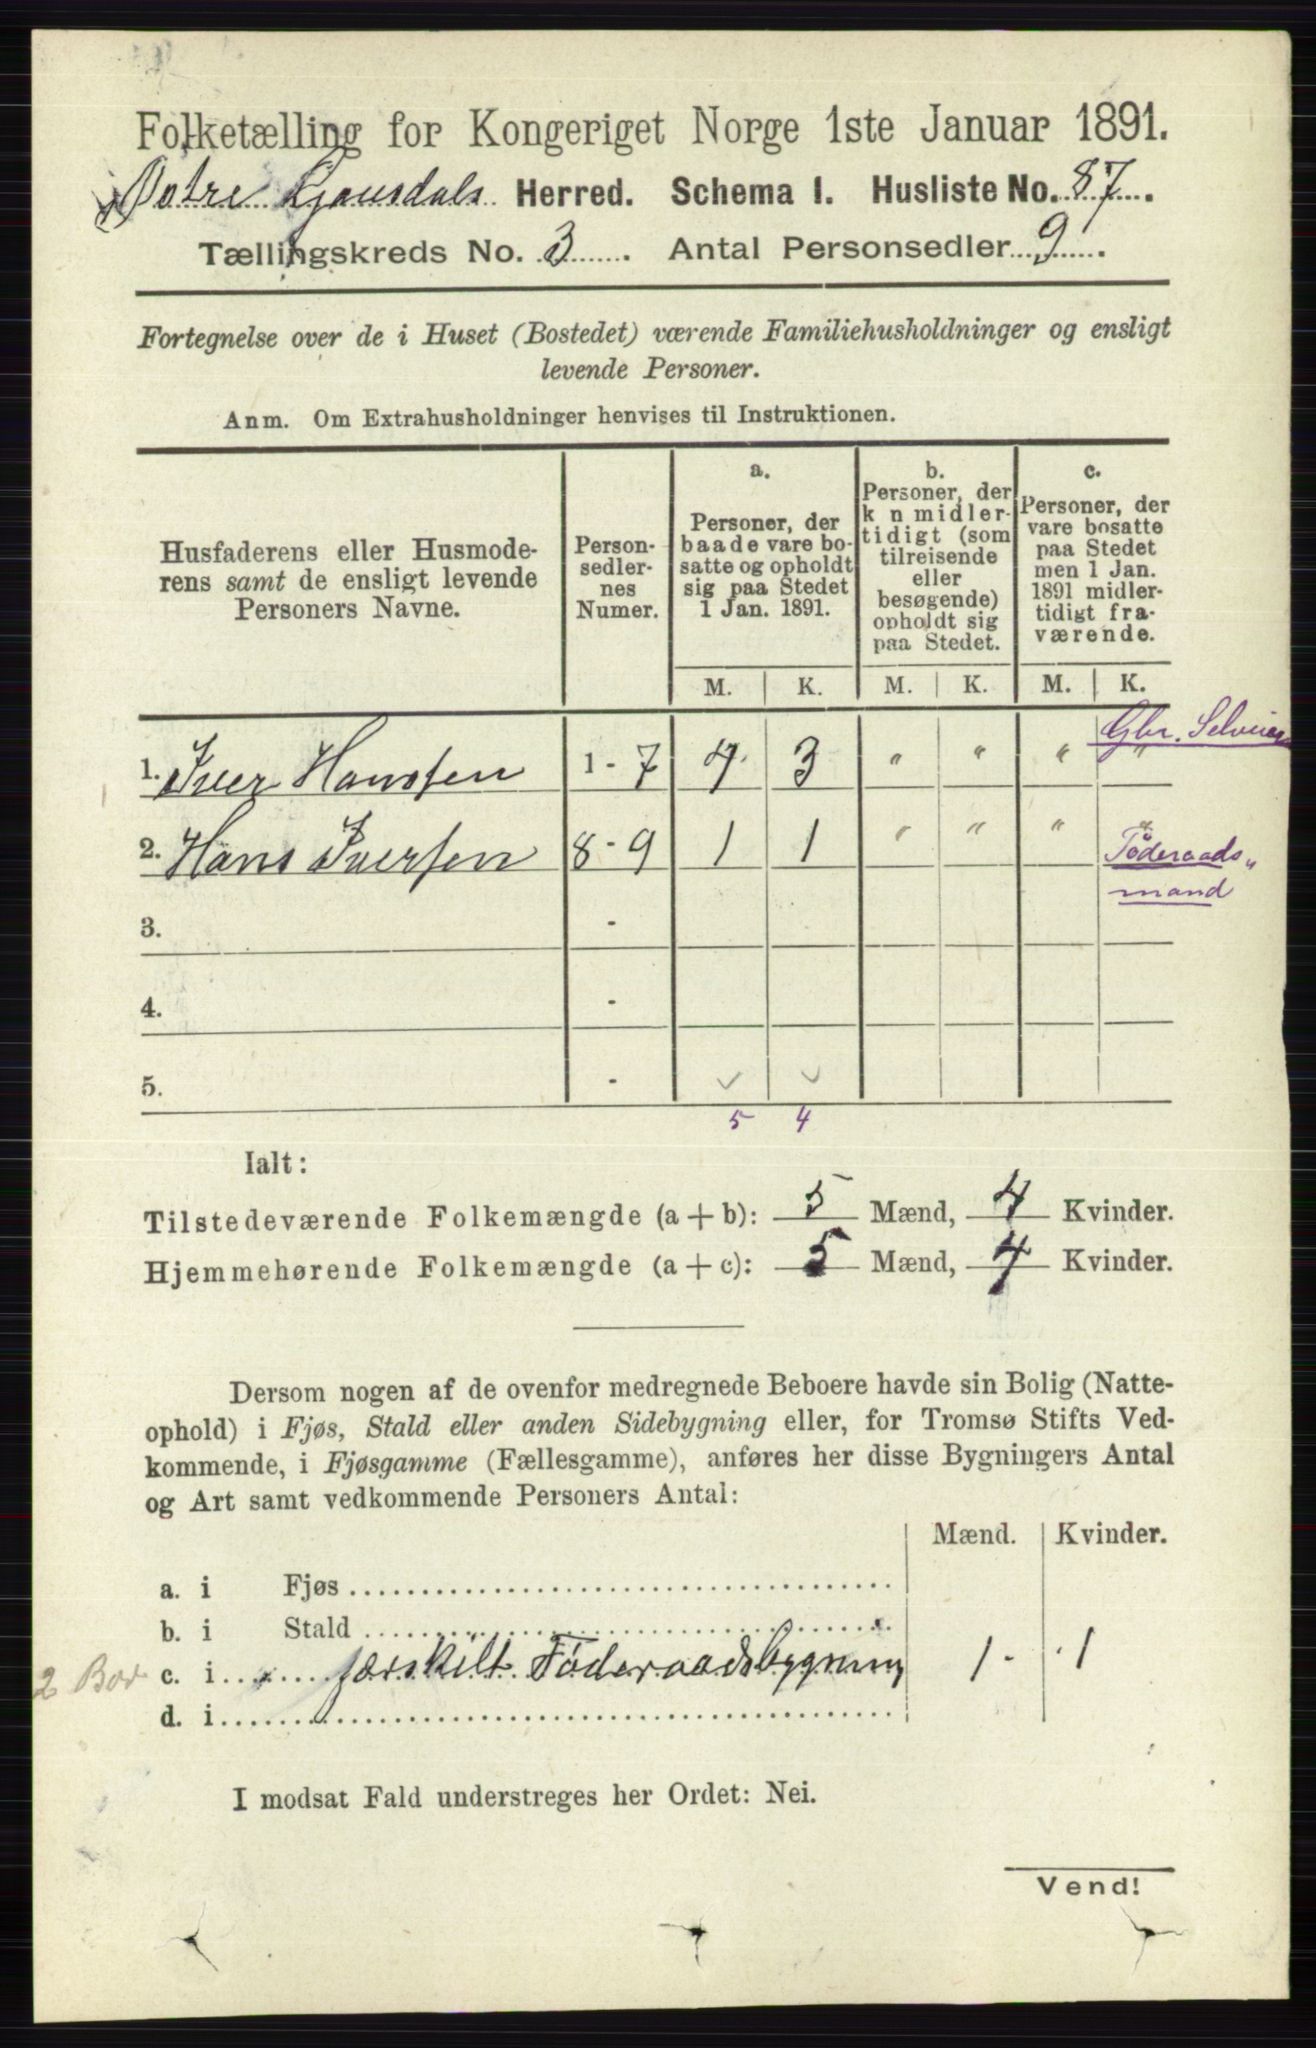 Folketælling for Kongeriget Norge 1ste Januar 1891.
Østre Gausdals Herred. Schema I. Husliste No. 87.
Tællingskreds No. 3. Antal Personsedler 9.
Fortegnelse over de i Huset (Bostedet) værende Familiehusholdninger og ensligt
levende Personer.
Anm. Om Extrahusholdninger henvises til Instruktionen.
Husfaderens eller Husmode-
rens samt de ensligt levende
Personers Navne.
Person-
sedler-
nes
Numer.
a.
Personer, der
baade vare bo-
satte og opholdt
sig paa Stedet
1 Jan. 1891.
b.
Personer, der
k n midler-
tidigt (som
tilreisende
eller
besøgende)
opholdt sig
paa Stedet.
c.
Personer, der
vare bosatte
paa Stedet
men 1 Jan.
1891 midler-
tidigt fra-
værende.
M. K. M. K. M. K.
Gbr. Selveier
1. Iver Hanssen 1 - 7 4 3 " " " "
2. Hans Iversen 8 - 9 1 1 " " " "
Føderaads
mand
3. -
4. -
5. -
5 4
Ialt:
Tilstedeværende Folkemængde (a + b): 5 Mænd, 4 Kvinder.
Hjemmehørende Folkemængde (a + c): 5 Mænd, 4 Kvinder.
Dersom nogen af de ovenfor medregnede Beboere havde sin Bolig (Natte-
ophold) i Fjøs, Stald eller anden Sidebygning eller, for Tromsø Stifts Ved-
kommende, i Fjøsgamme (Fællesgamme), anføres her disse Bygningers Antal
og Art samt vedkommende Personers Antal:
Mænd. Kvinder.
a. i Fjøs
b. i Stald
2 Bor c. i særskilt Føderaadsbygning 1 1
d. i
I modsat Fald understreges her Ordet: Nei.
Vend!